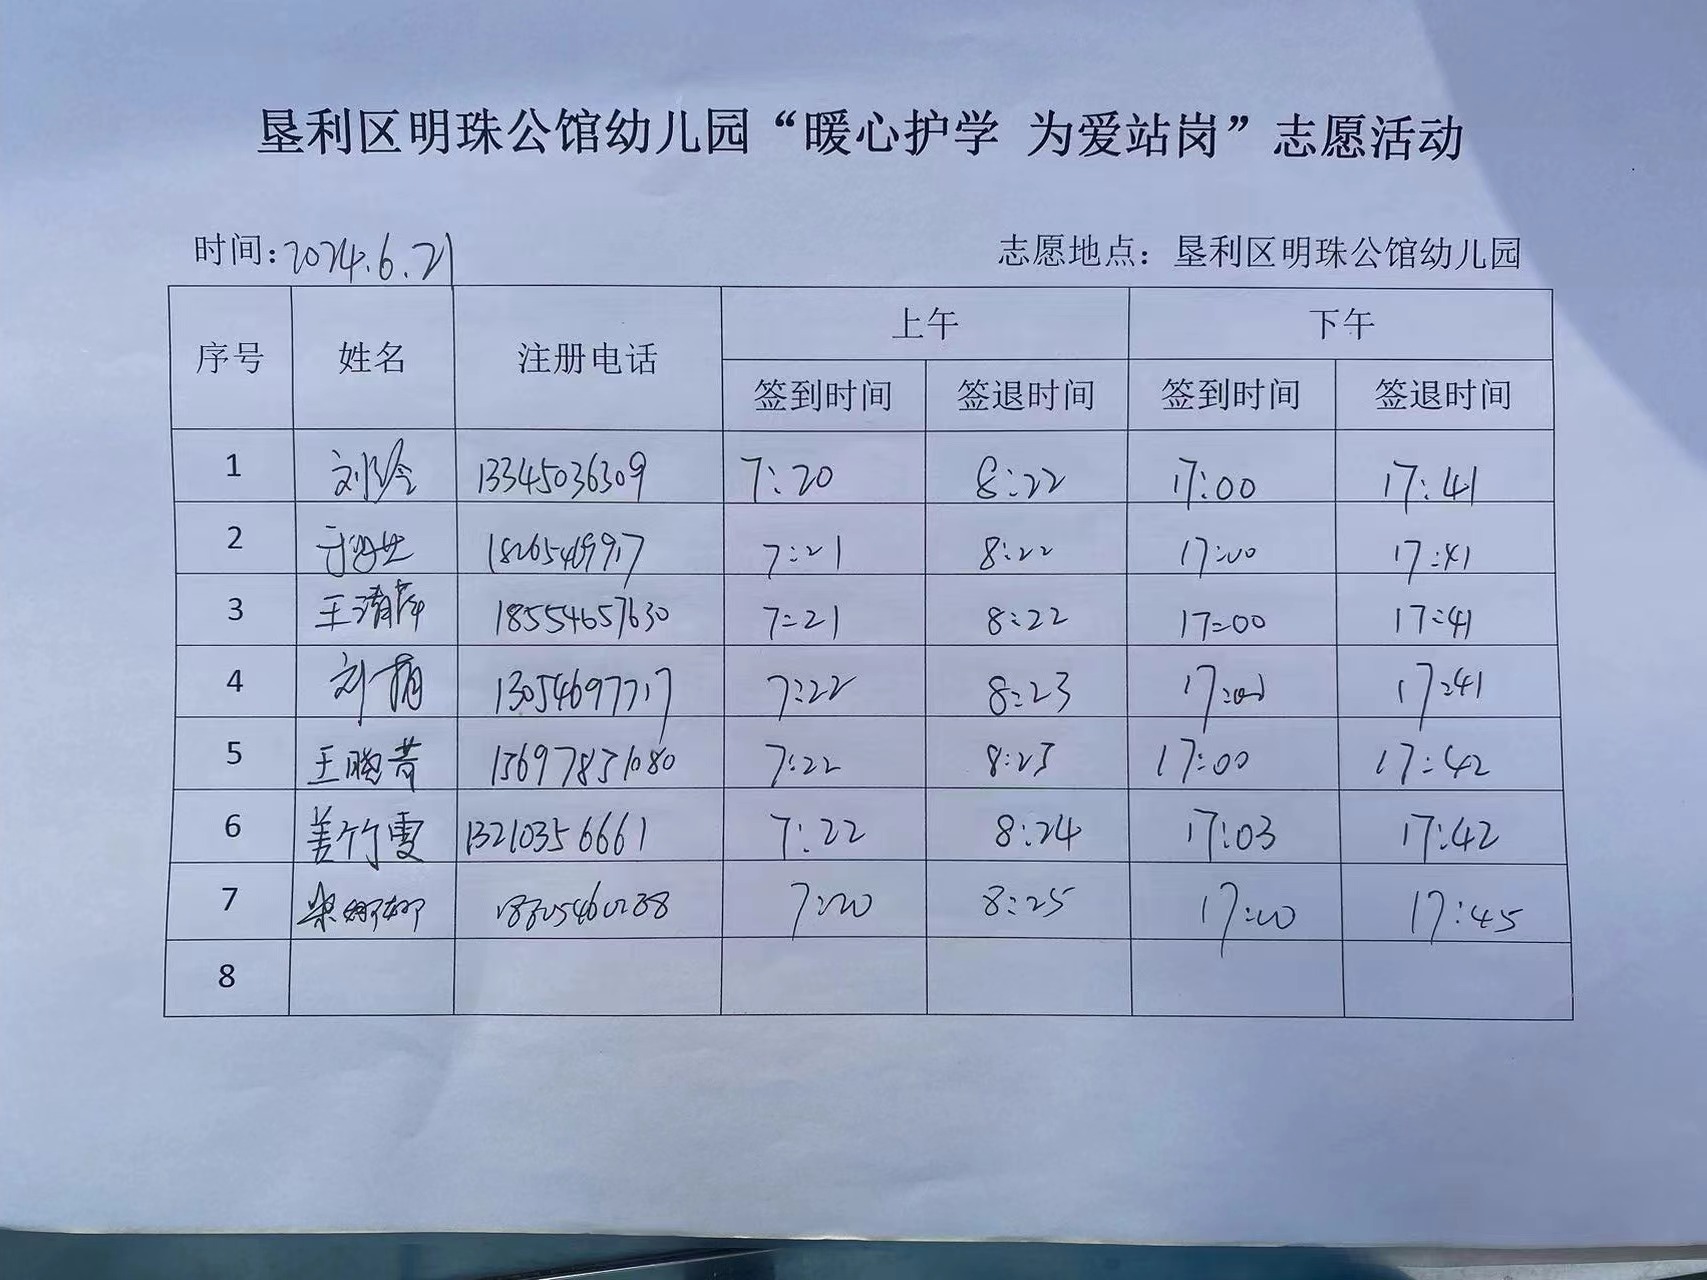 垦利区明珠公馆幼儿园“暖心护学 为爱站岗”志愿活动
时间:2024.6.21 志愿地点：垦利区明珠公馆幼儿园
序号 姓名 注册电话 上午 下午
签到时间 签退时间 签到时间 签退时间
1 刘玲 13345036309 7:20 8:22 17:00 17:41
2 7:21 8:22 17:00 17:41
3 王清萍 18554657630 7:21 8:22 17:00 17:41
4 刘萌 13054697717 7:22 8:23 17:00 17:41
5 王晓菁 15697851080 7:22 8:23 17:00 17:42
6 姜竹雯 13210356661 7:22 8:24 17:03 17:42
7 7:20 8:25 17:00 17:45
8